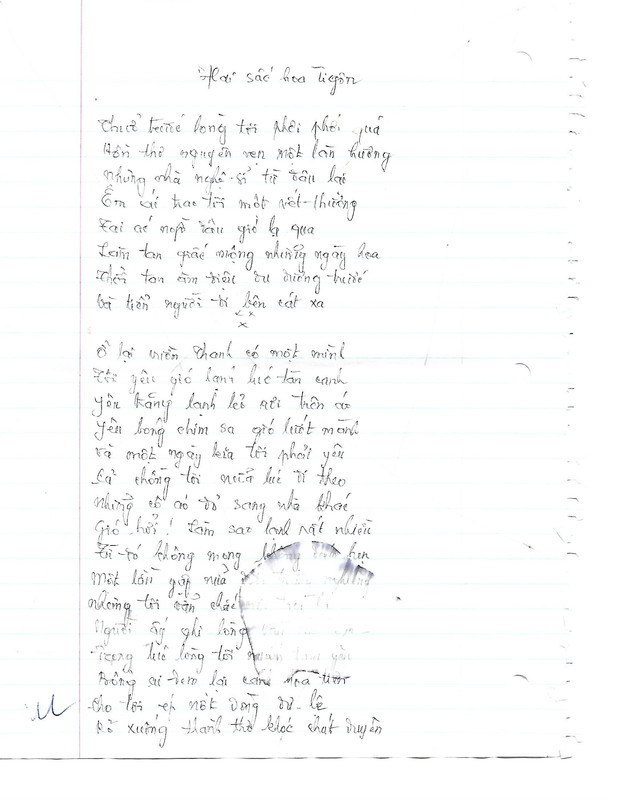 Hai sắc hoa Tigôn
Thuở trước lòng tôi phơi phới quá
Hồn thơ nguyên vẹn một làn hương
Những nhà nghệ-sĩ từ đâu lại
Êm ái trao tôi một vết-thương
Tai ác ngờ đâu gió lạ qua
Làm tan giấc mộng những ngày hoa
Thổi tan âm điệu du dương trước
Và tiễn người đi bên cát xa
x x
x
Ở lại vườn thanh có một mình
Tôi yêu gió lạnh lúc tàn canh
Yêu trăng lạnh lẻo rơi trên áo
Yêu bóng chim sa gió lướt mành
Và một ngày kia tôi phải yêu
Cả chồng tôi nữa lúc đi theo
Những cô áo đỏ sang nhà khác
Gió hỡi! Làm sao lạnh rất nhiều
Từ-đó không mong hẹn
Một lần gặp nữa
nhưng tôi vẫn chắc
Người ấy ghi lòng
Trong lúc lòng tôi
Bỗng ai đem lại cánh hoa tim
Cho tôi ép nốt dòng dư-lệ
Rỏ xuống thành thơ khóc chút duyên